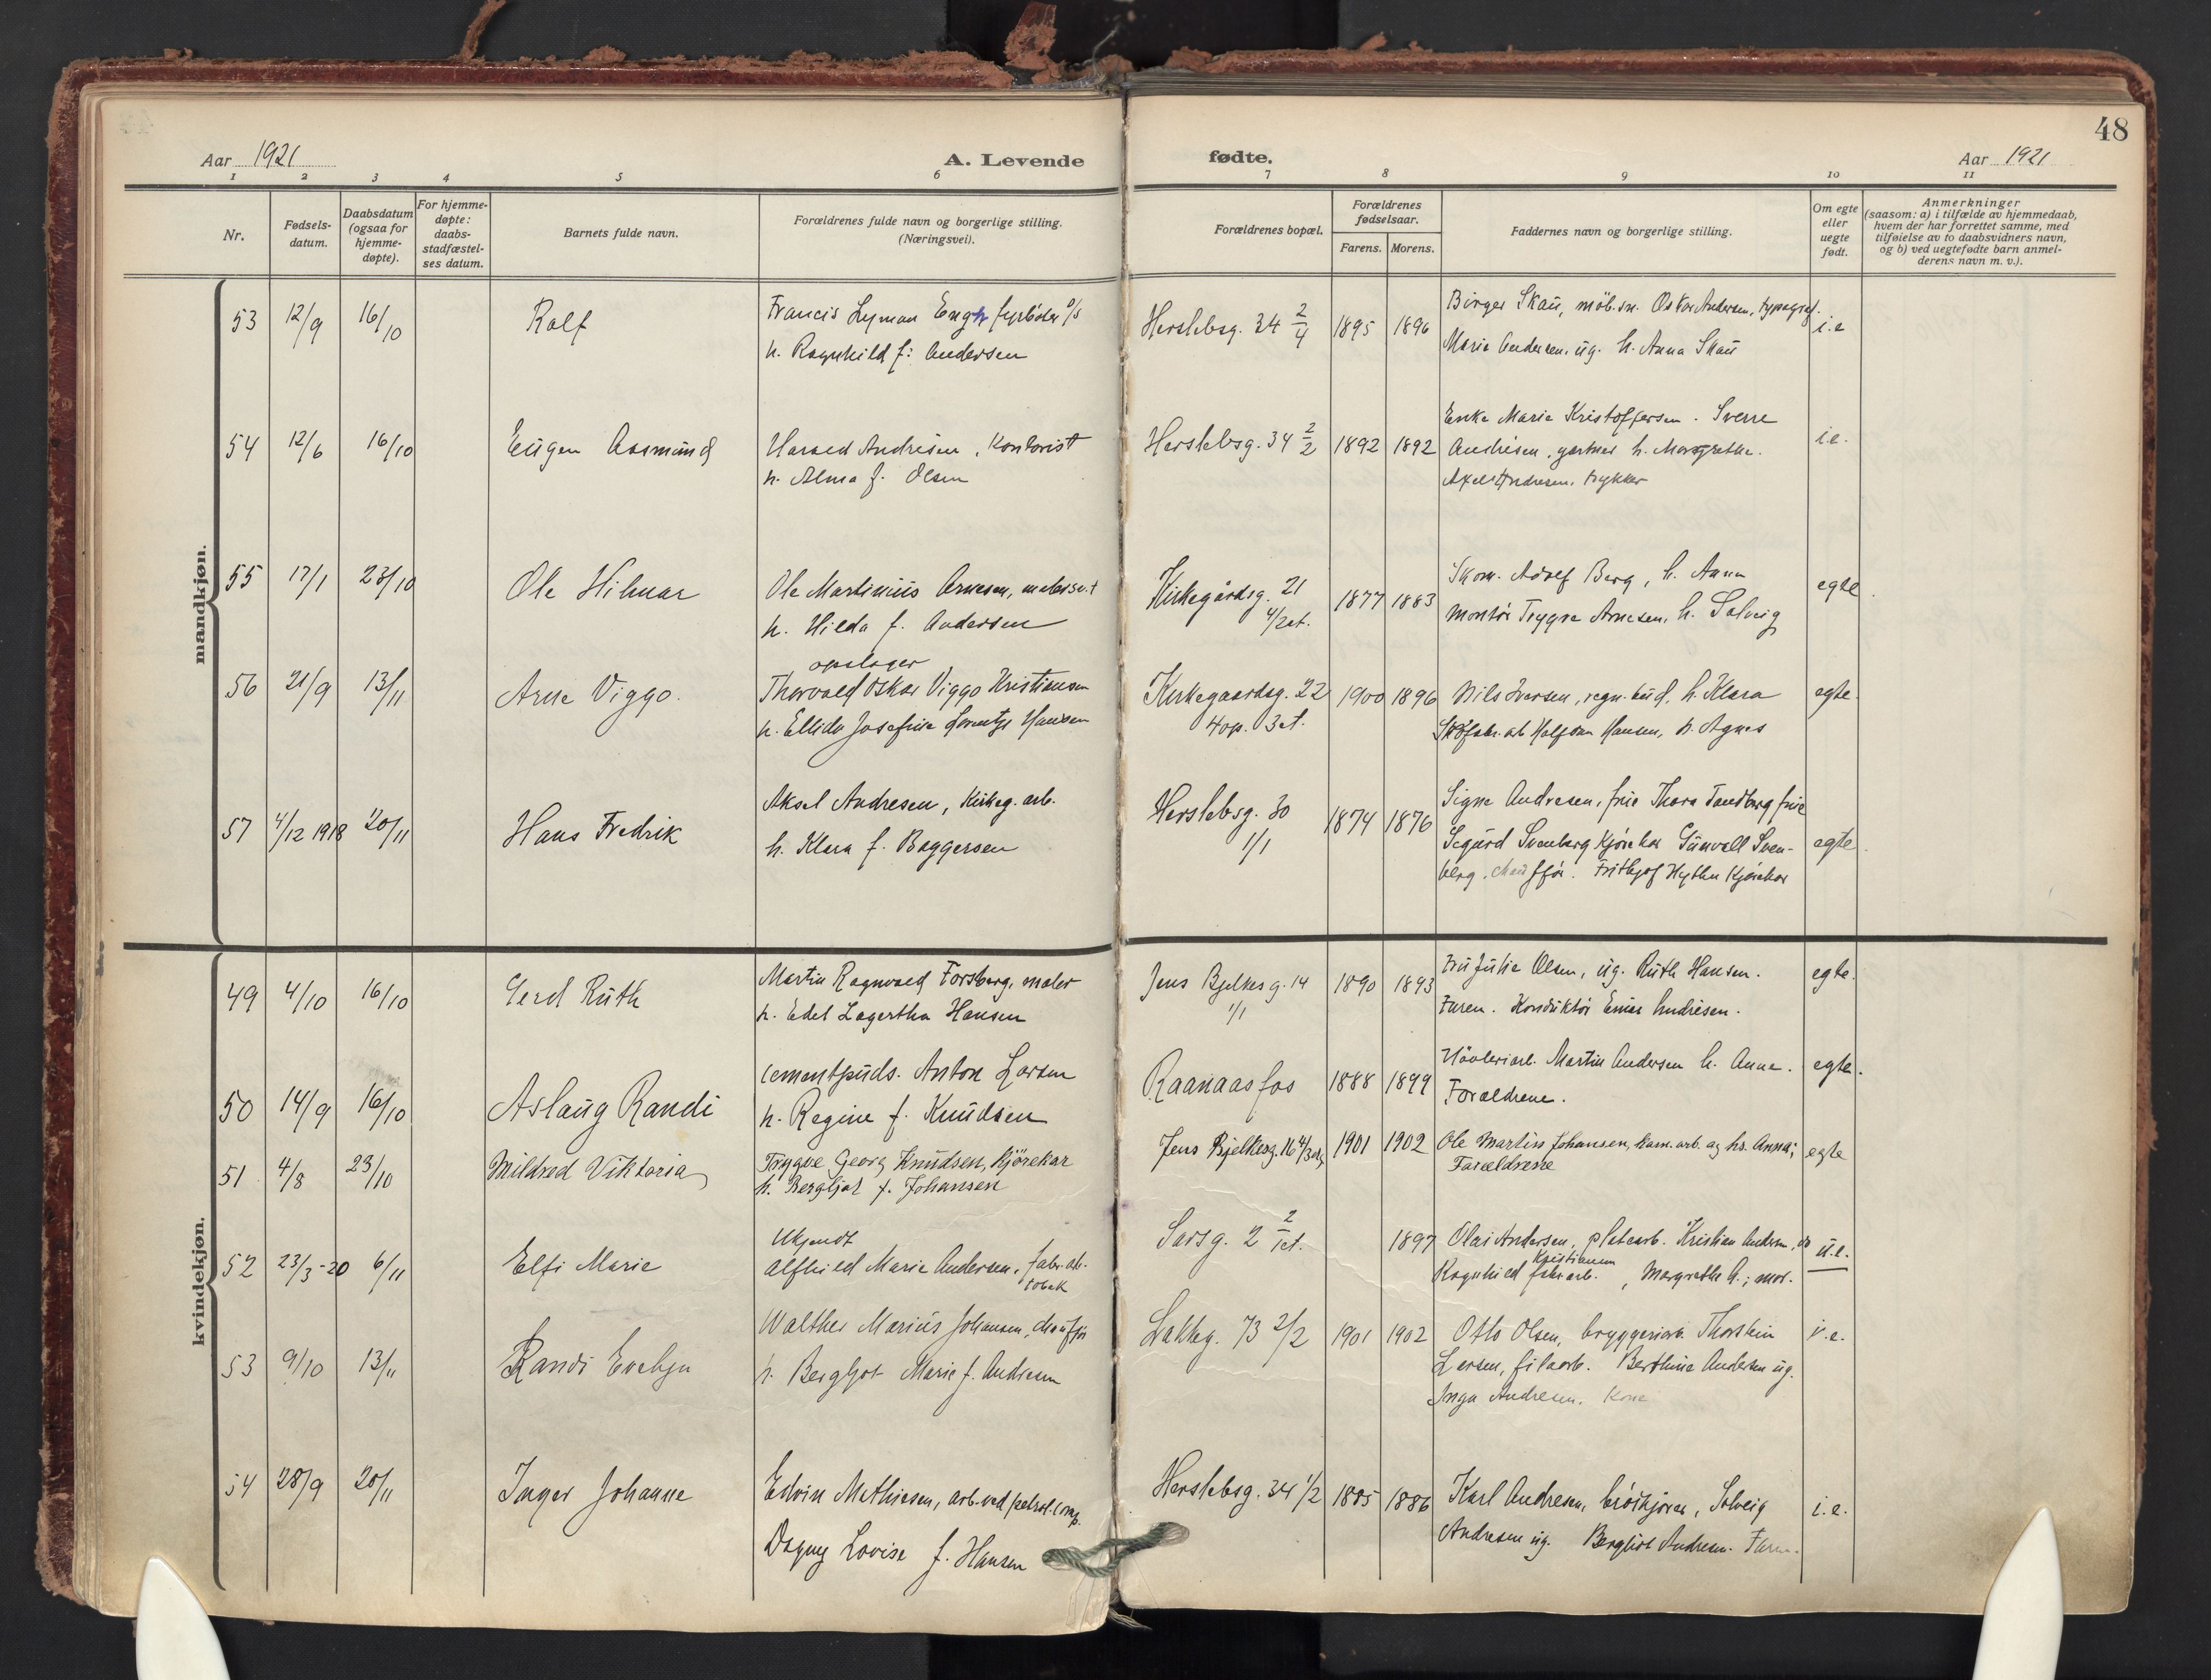 48
Aar 1921
A. Levende
fødte.
Aar 1921
1 2 3 4 5 6 7 8 9 10 11
Nr.
Fødsels-
datum.
Daabsdatum
(ogsaa for
hjemme-
døpte).
For hjemme-
døpte:
daabs-
stadfæstel-
ses datum.
Barnets fulde navn.
Forældrenes fulde navn og borgerlige stilling.
(Næringsvei).
Forældrenes bopæl.
Forældrenes
fødselsaar.
Farens. Morens.
Faddernes navn og borgerlige stilling.
Om egte
eller
uegte
født.
Anmerkninger
(saasom: a) i tilfælde av hjemmedaab,
hvem der har forrettet samme, med
tilføielse av to daabsvidners navn,
og b) ved uegtefødte barn anmel-
derens navn m. v.).
mandkjøn.
53 12/9 16/10 Rolf
Francis Lyman Engh fyrbøter D/S
h. Ragnhild f: Andersen
Herslebsg. 34 2/4 1895 1896
Birger Skaü, möb.sn. Oskar Andersen, typograf.
Marie Andersen, üg. h. Anna Skaü
i.e
54 12/6 16/10 Eügen Aasmünd
Harald Andresen, Kontorist
h. Alma f. Olsen
Herslebsg. 34 2/2 1892 1892
Enke Marie Kristoffersen. Sverre
Andresen, gartner h. Margrethe.
Axel Andresen, trykker
i.e.
55 17/1 23/10 Ole Hilmar
Ole Martiniüs Arnesen, malersv.t
h. Hilda f. Andersen
Kirkegårdsg. 21
4/2et.
1877 1883
Skom. Adolf Berg, h. Anna
Montör Trygve Arnesen, h. Solveig
egte
56 21/9 13/11 Arne Viggo.
opslager
Thorvald Oskar Viggo Kristiansen
h. Ellida Josefine Lorentze Hansen
Kirkegaardsg. 22
4op. 3et.
1900 1896
Nils Iversen, regn.büd, h. Klara
Skofabr.arb Halfdan Hansen, h. Agnes
egte.
57 4/12 1918 20/11 Hans Fredrik
Aksel Andresen, Kirkeg. arb.
h. Klara f. Baggersen
Herslebsg. 30
1/1
1874 1876
Signe Andresen, früe Thora Tandberg früe
Sigürd Svenberg Kjörekar Günvall Sven-
berg, chaufför. Frithjof Hythen Kjörekar
egte.
kvindekjøn.
49 4/10 16/10 Gerd Rüth
Martin Ragnvald Forsberg, maler
h. Edel Lagertha Hansen
Jens Bjelkesg. 14
1/1
1890 1893
Frü Julie Olsen, üg. Rüth Hansen.
Faren. Kondüktör Einar Andresen.
egte.
50 14/9 16/10 Aslaüg Randi
cementpüds. Anton Larsen
h. Regine f. Knüdsen
Raanaasfos 1888 1899
Hövleriarb. Martin Andersen h. Anna.
Forældrene.
egte.
51 4/8 23/10 Mildred Viktoria
Trygve Georg Knüdsen, Kjörekar
h. Bergljot f. Johansen
Jens Bjelkesg. 16 4/3etg 1901 1902
Ole Martin Johansen, kom.arb. og hr. Anna;
Forældrene
egte
52 23/3-20 6/11 Elfi Marie
Ukjendt
Alfhild Marie Andersen, fabr.arb.
tobak
Sarsg. 2 2/1et. 1897
Olai Andersen, platearb. Kristian Andersen, do
Kristiansen
Ragnhild fabrarb., Margrethe A.; mor.
ü.e.
53 9/10 13/11 Randi Evelyn
Walther Mariüs Johansen, chaufför
h. Bergljot Marie f. Andresen
Lakkeg. 73 2/2 1901 1902
Otto Olsen, bryggeriarb. Thorstein
Larsen, filearb. Berthine Andersen üg.
Inga Andresen. Kone
i.e.
54 28/9 20/11 Inger Johanne
Edvin Mathiesen, arb. ved petrol.comp.
Dagny Lovise f. Hansen
Herslebsg. 34 1/2 1885 1886
Karl Andresen, brödkjörer, Solveig
Andresen üg. Bergliot Andresen. Faren.
i.e.